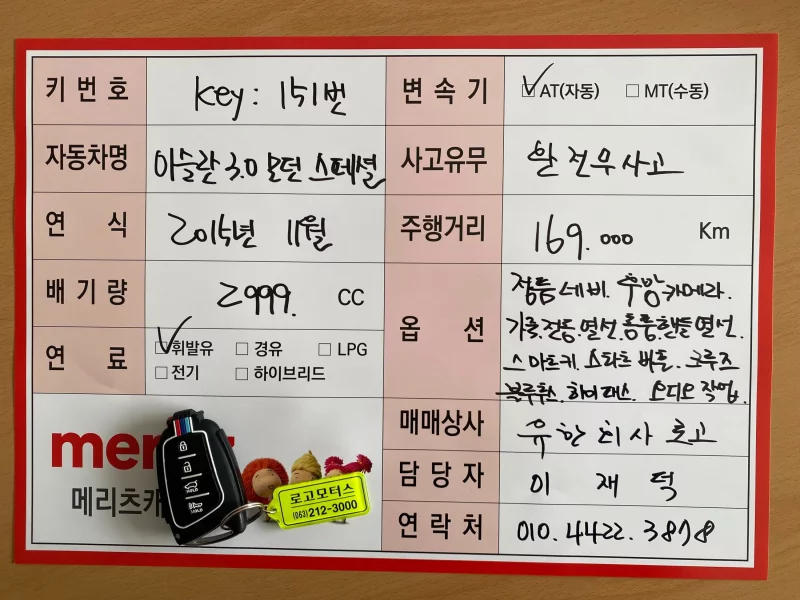 키 번 호 Key : 151번
변 속 기 ☑ AT(자동) □ MT(수동)
자동차명 아슬란 3.0 모던 스페셜
사고유무 완전무사고
연 식 2015년 11월
주행거리 169.000 Km
배 기 량 2999. CC
옵 션 정품네비. 후방카메라.
가죽.전동.열선.통풍.핸들열선.
스마트키. 스타트버튼. 크루즈
블루투스. 하이패스. 오디오 작업.
연 료 ☑ 휘발유 □ 경유 □ LPG
□ 전기 □ 하이브리드
매매상사 유한회사 로고
담 당 자 이 재 덕
연 락 처 010.4422.3878
mer
메리츠캐
로고모터스
(063)212-3000
HOLD
HOLD